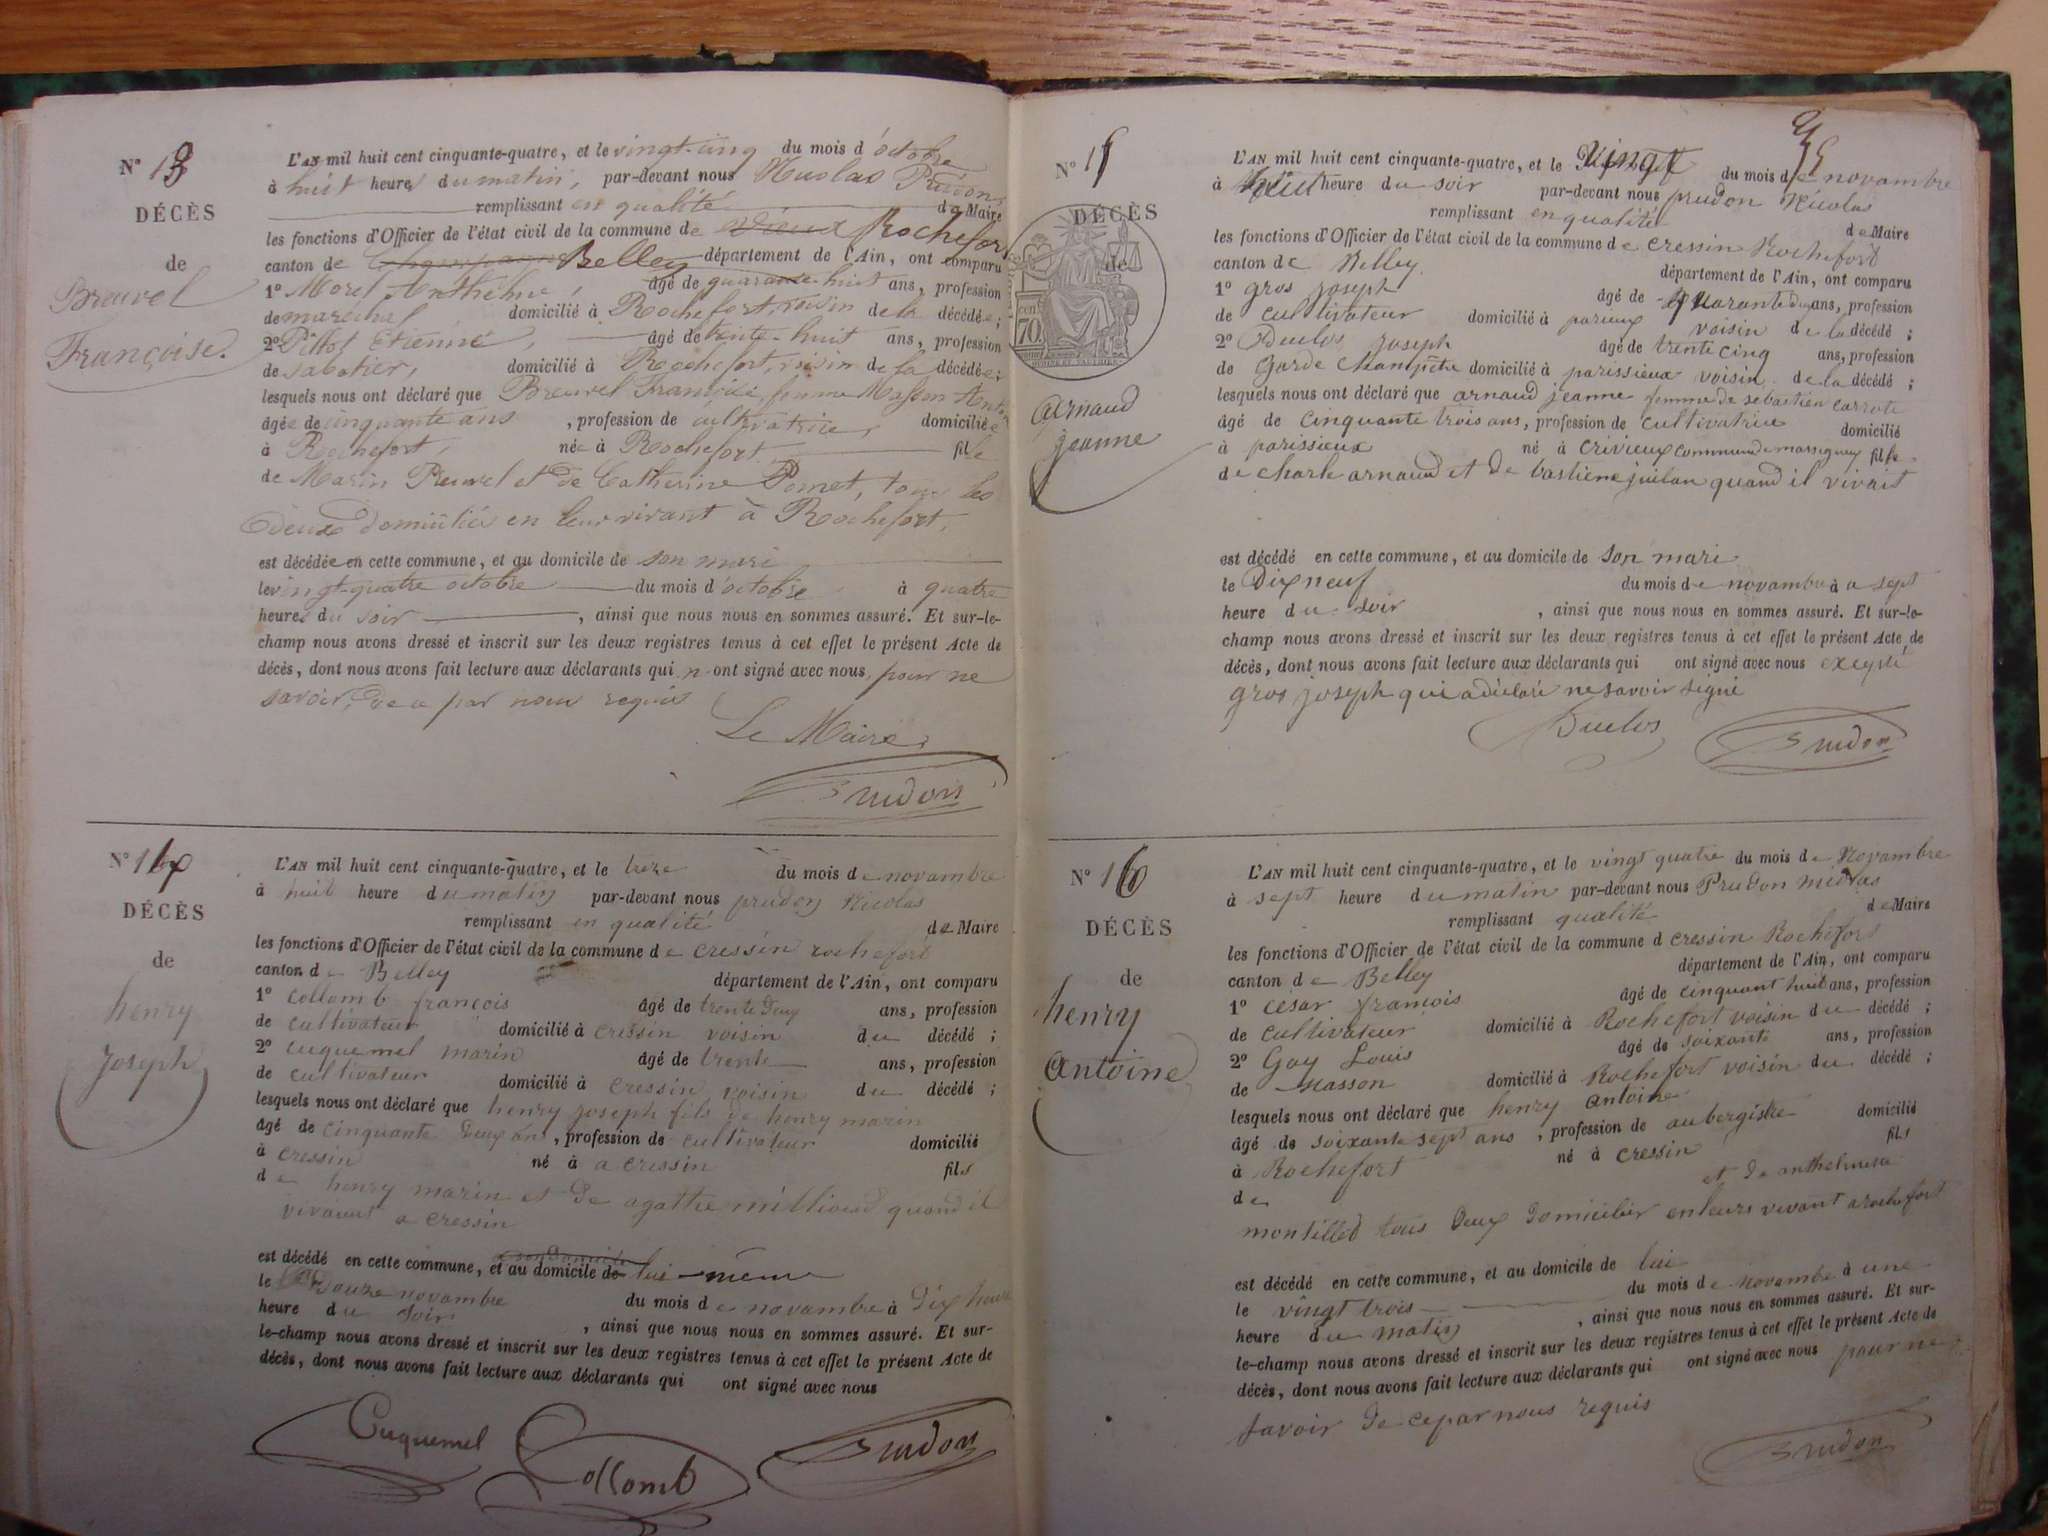 N° 13
DÉCÈS
de
Breuvel
Françoise.
L'AN mil huit cent cinquante-quatre, et le vingt-cinq du mois d'octobre
à huit heures du matin, par-devant nous Nicolas Prudon,
remplissant en qualité de Maire
les fonctions d'Officier de l'état civil de la commune de Rochefort
canton de Belley département de l'Ain, ont comparu
1° Morel Anthelme, âgé de quarante-huit ans, profession
de maréchal domicilié à Rochefort, voisin de la décédée;
2° Pillot Etienne, âgé de trente-huit ans, profession
de sabotier, domicilié à Rochefort, voisin de la décédée;
lesquels nous ont déclaré que Breuvel Françoise, femme Masson
âgée de cinquante ans, profession de cultivatrice, domiciliée
à Rochefort, née à Rochefort fille
de Marin Breuvel et de Catherine Pomet, tous les
deux domiciliés en leur vivant à Rochefort,
est décédée en cette commune, et au domicile de son mari
le vingt-quatre octobre du mois d'octobre à quatre
heures du soir, ainsi que nous nous en sommes assuré. Et sur-le-
champ nous avons dressé et inscrit sur les deux registres tenus à cet effet le présent Acte de
décès, dont nous avons fait lecture aux déclarants qui n'ont signé avec nous, pour ne
savoir, de ce par nous requis
Le Maire,
Prudon
N° 14
DÉCÈS
de
henry
joseph
L'AN mil huit cent cinquante-quatre, et le treze du mois de novambre
à huit heure du matin par-devant nous prudon Nicolas
remplissant en qualité de Maire
les fonctions d'Officier de l'état civil de la commune de cressin rochefort
canton de Belley département de l'Ain, ont comparu
1° collomb françois âgé de trente deux ans, profession
de cultivateur domicilié à cressin voisin du décédé;
2° cuquemel marin âgé de trente ans, profession
de cultivateur domicilié à cressin voisin du décédé;
lesquels nous ont déclaré que henry joseph fils de henry marin
âgé de cinquante deux ans, profession de cultivateur domicilié
à cressin né à a cressin fils
de henry marin et de agathe milliend quand il
vivaient a cressin
est décédé en cette commune, et au domicile de lui même
le Douze novambre du mois de novambre à Dix heure
heure du soir, ainsi que nous nous en sommes assuré. Et sur-
le-champ nous avons dressé et inscrit sur les deux registres tenus à cet effet le présent Acte de
décès, dont nous avons fait lecture aux déclarants qui ont signé avec nous
Cuquemel Collomb Prudon
N° 15
DÉCÈS
de
arnaud
jeanne
70
L'AN mil huit cent cinquante-quatre, et le vingt du mois de novambre
à huit heure du soir par-devant nous prudon Nicolas
remplissant en qualité de Maire
les fonctions d'Officier de l'état civil de la commune de cressin Rochefort
canton de Belley département de l'Ain, ont comparu
1° gros joseph âgé de quarante deux ans, profession
de cultivateur domicilié à voisin de la décédé;
2° Duclos joseph âgé de trente cinq ans, profession
de garde champetre domicilié à parissieux voisin de la décédé;
lesquels nous ont déclaré que arnaud jeanne femme de sebastien carrote
âgé de cinquante trois ans, profession de cultivatrice domicilié
à parissieux né à crivieux commune de massigneux fille
de charle arnaud et de bastiene quand il vivait
est décédé en cette commune, et au domicile de son mari
le Dix neuf du mois de novambre à a sept
heure du soir, ainsi que nous nous en sommes assuré. Et sur-le-
champ nous avons dressé et inscrit sur les deux registres tenus à cet effet le présent Acte de
décès, dont nous avons fait lecture aux déclarants qui ont signé avec nous
gros joseph qui a déclaré ne savoir signé
Duclos Prudon
N° 16
DÉCÈS
de
henry
antoine
L'AN mil huit cent cinquante-quatre, et le vingt quatre du mois de Novambre
à sept heure du matin par-devant nous Prudon nicolas
remplissant qualité de Maire
les fonctions d'Officier de l'état civil de la commune d cressin Rochefort
canton de Belley département de l'Ain, ont comparu
1° césar françois âgé de cinquant huit ans, profession
de cultivateur domicilié à Rochefort voisin du décédé;
2° Gay Louis âgé de soixante ans, profession
de masson domicilié à Rochefort voisin du décédé;
lesquels nous ont déclaré que henry antoine
âgé de soixante sept ans, profession de aubergiste domicilié
à Rochefort né à cressin fils
de et de anthelmeta
montilled tous Deux Domicilier en leurs vivant a rochefort
est décédé en cette commune, et au domicile de lui
le vingt trois du mois de novambre à une
heure du matin, ainsi que nous nous en sommes assuré. Et sur-
le-champ nous avons dressé et inscrit sur les deux registres tenus à cet effet le présent Acte de
décès, dont nous avons fait lecture aux déclarants qui ont signé avec nous pour ne
savoir De ce par nous requis
Prudon